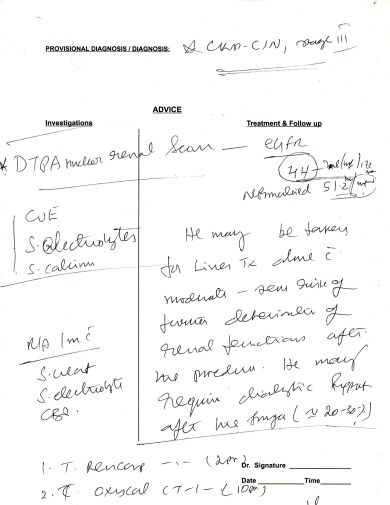 PROVISIONAL DIAGNOSIS / DIAGNOSIS: CKD-CIN, stage III
ADVICE
Investigations
Treatment & Follow up
DTPA nuclear renal Scan — eGFR
44
Normalised 51.2
CUE
S. Electrolytes
S. calcium
He may be taken
for Liver Tx alone c̄
moderate – risk of
further deterioration of
renal functions after
the procedure. He may
require dialytic support
after the surgery (≈ 20-30%)
R/A 1 m c̄
S. creat
S. electrolyte
CBP.
1. T. Rencap - - - (2pm)
2. T. Oxyscal (T-1- (10pm)
Dr. Signature
Date Time